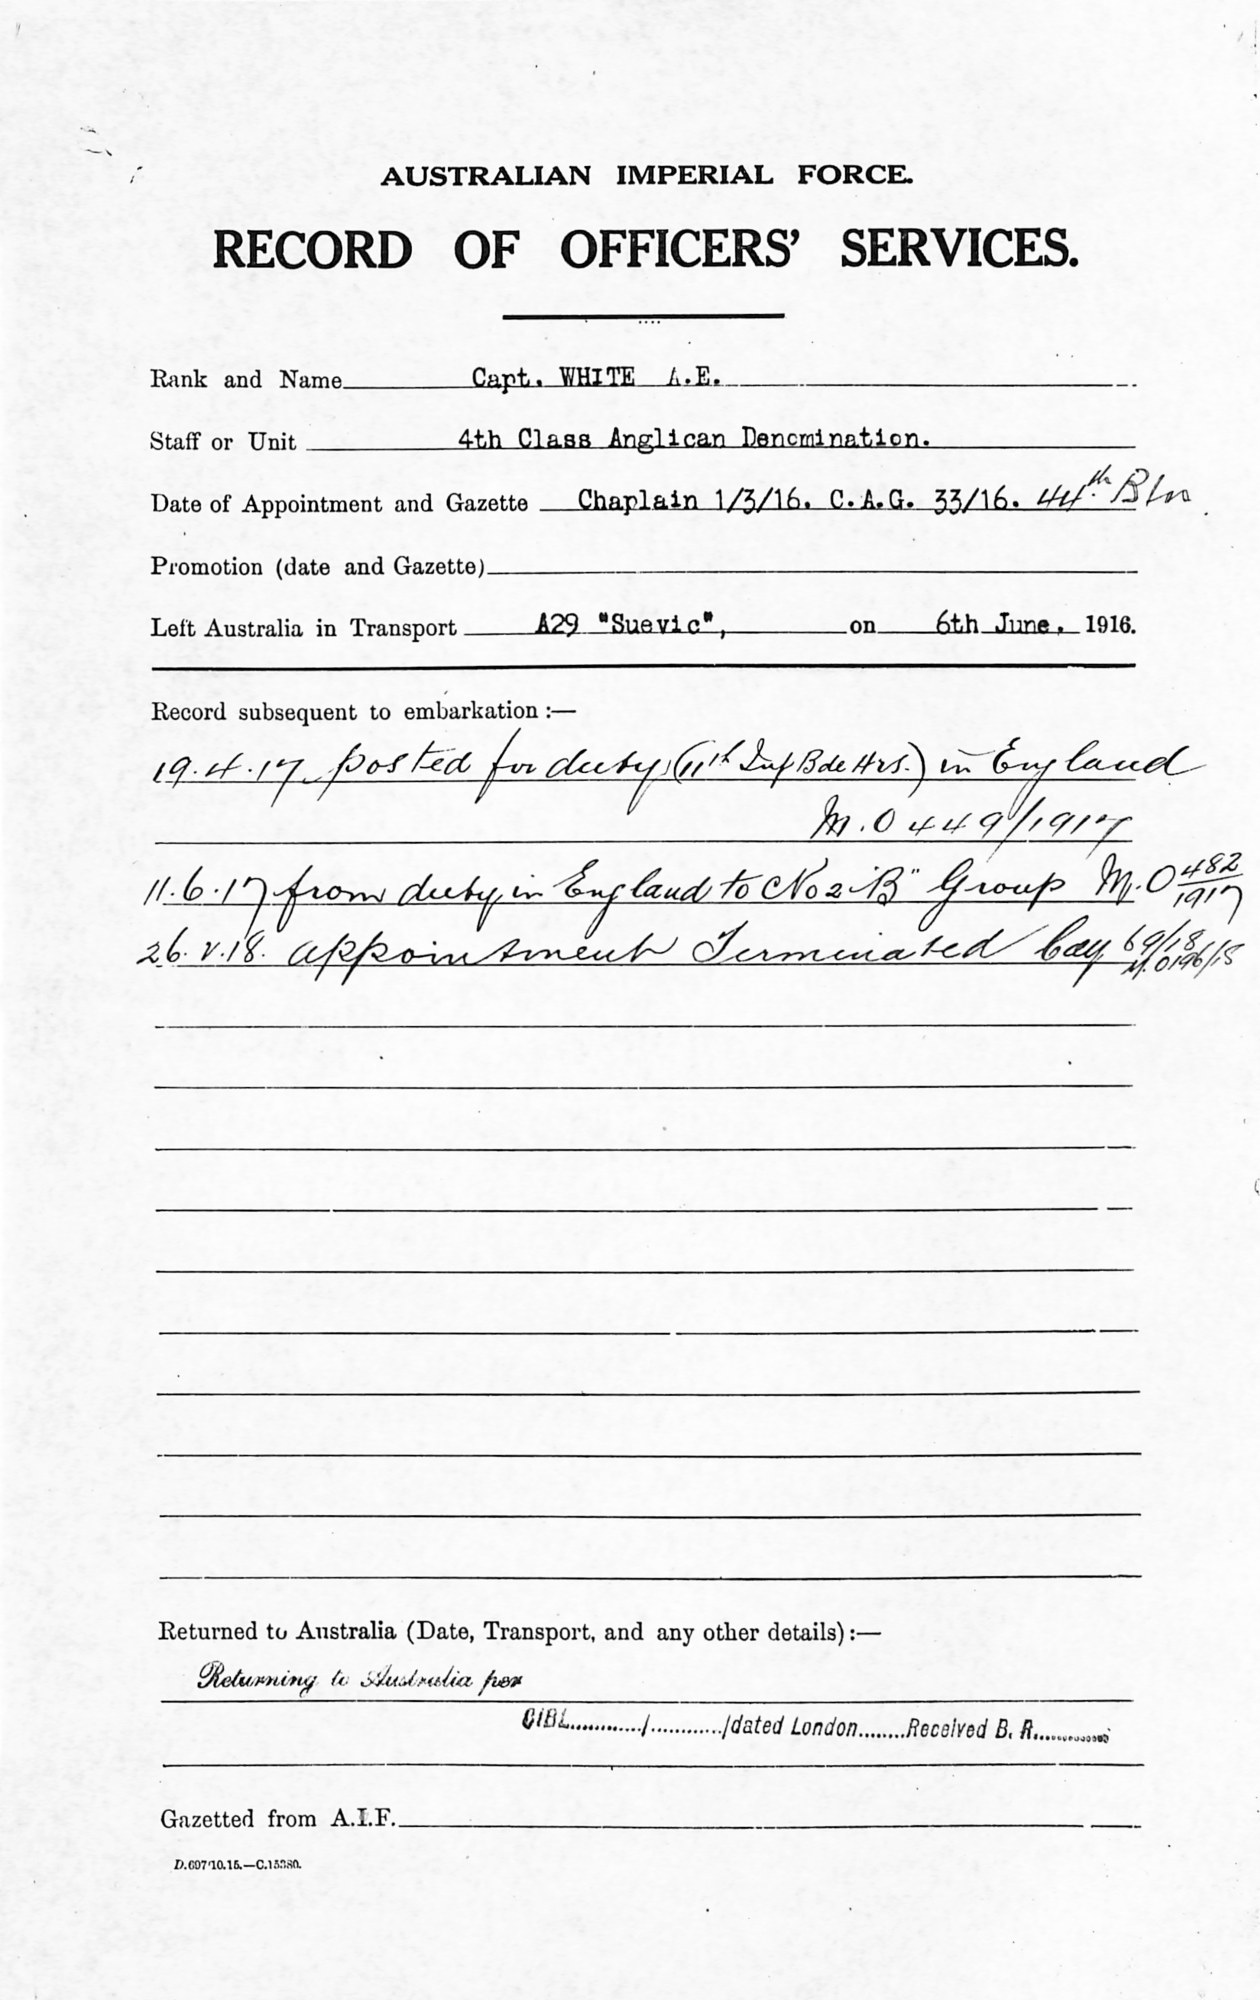 AUSTRALIAN IMPERIAL FORCE.
RECORD OF OFFICERS' SERVICES.
Rank and Name Capt. WHITE A.E.
Staff or Unit 4th Class Anglican Denomination.
Date of Appointment and Gazette Chaplain 1/3/16. C.A.G. 33/16. 44th. Bln
Promotion (date and Gazette)
Left Australia in Transport A29 "Suevic", on 6th June, 1916.
Record subsequent to embarkation :—
19.4.17 posted for duty (11th Inf Bde Hrs.) in England
M.O 449/1917
11.6.17 from duty in England to No 2 "B" Group M.O 482/1917
26.V.18. appointment Terminated Cag 69/18
M.O196/18
Returned to Australia (Date, Transport, and any other details) :—
Returning to Australia per
CIBL............/............/dated London........Received B. R.............
Gazetted from A.I.F.
D.607/10.15.—C.15380.